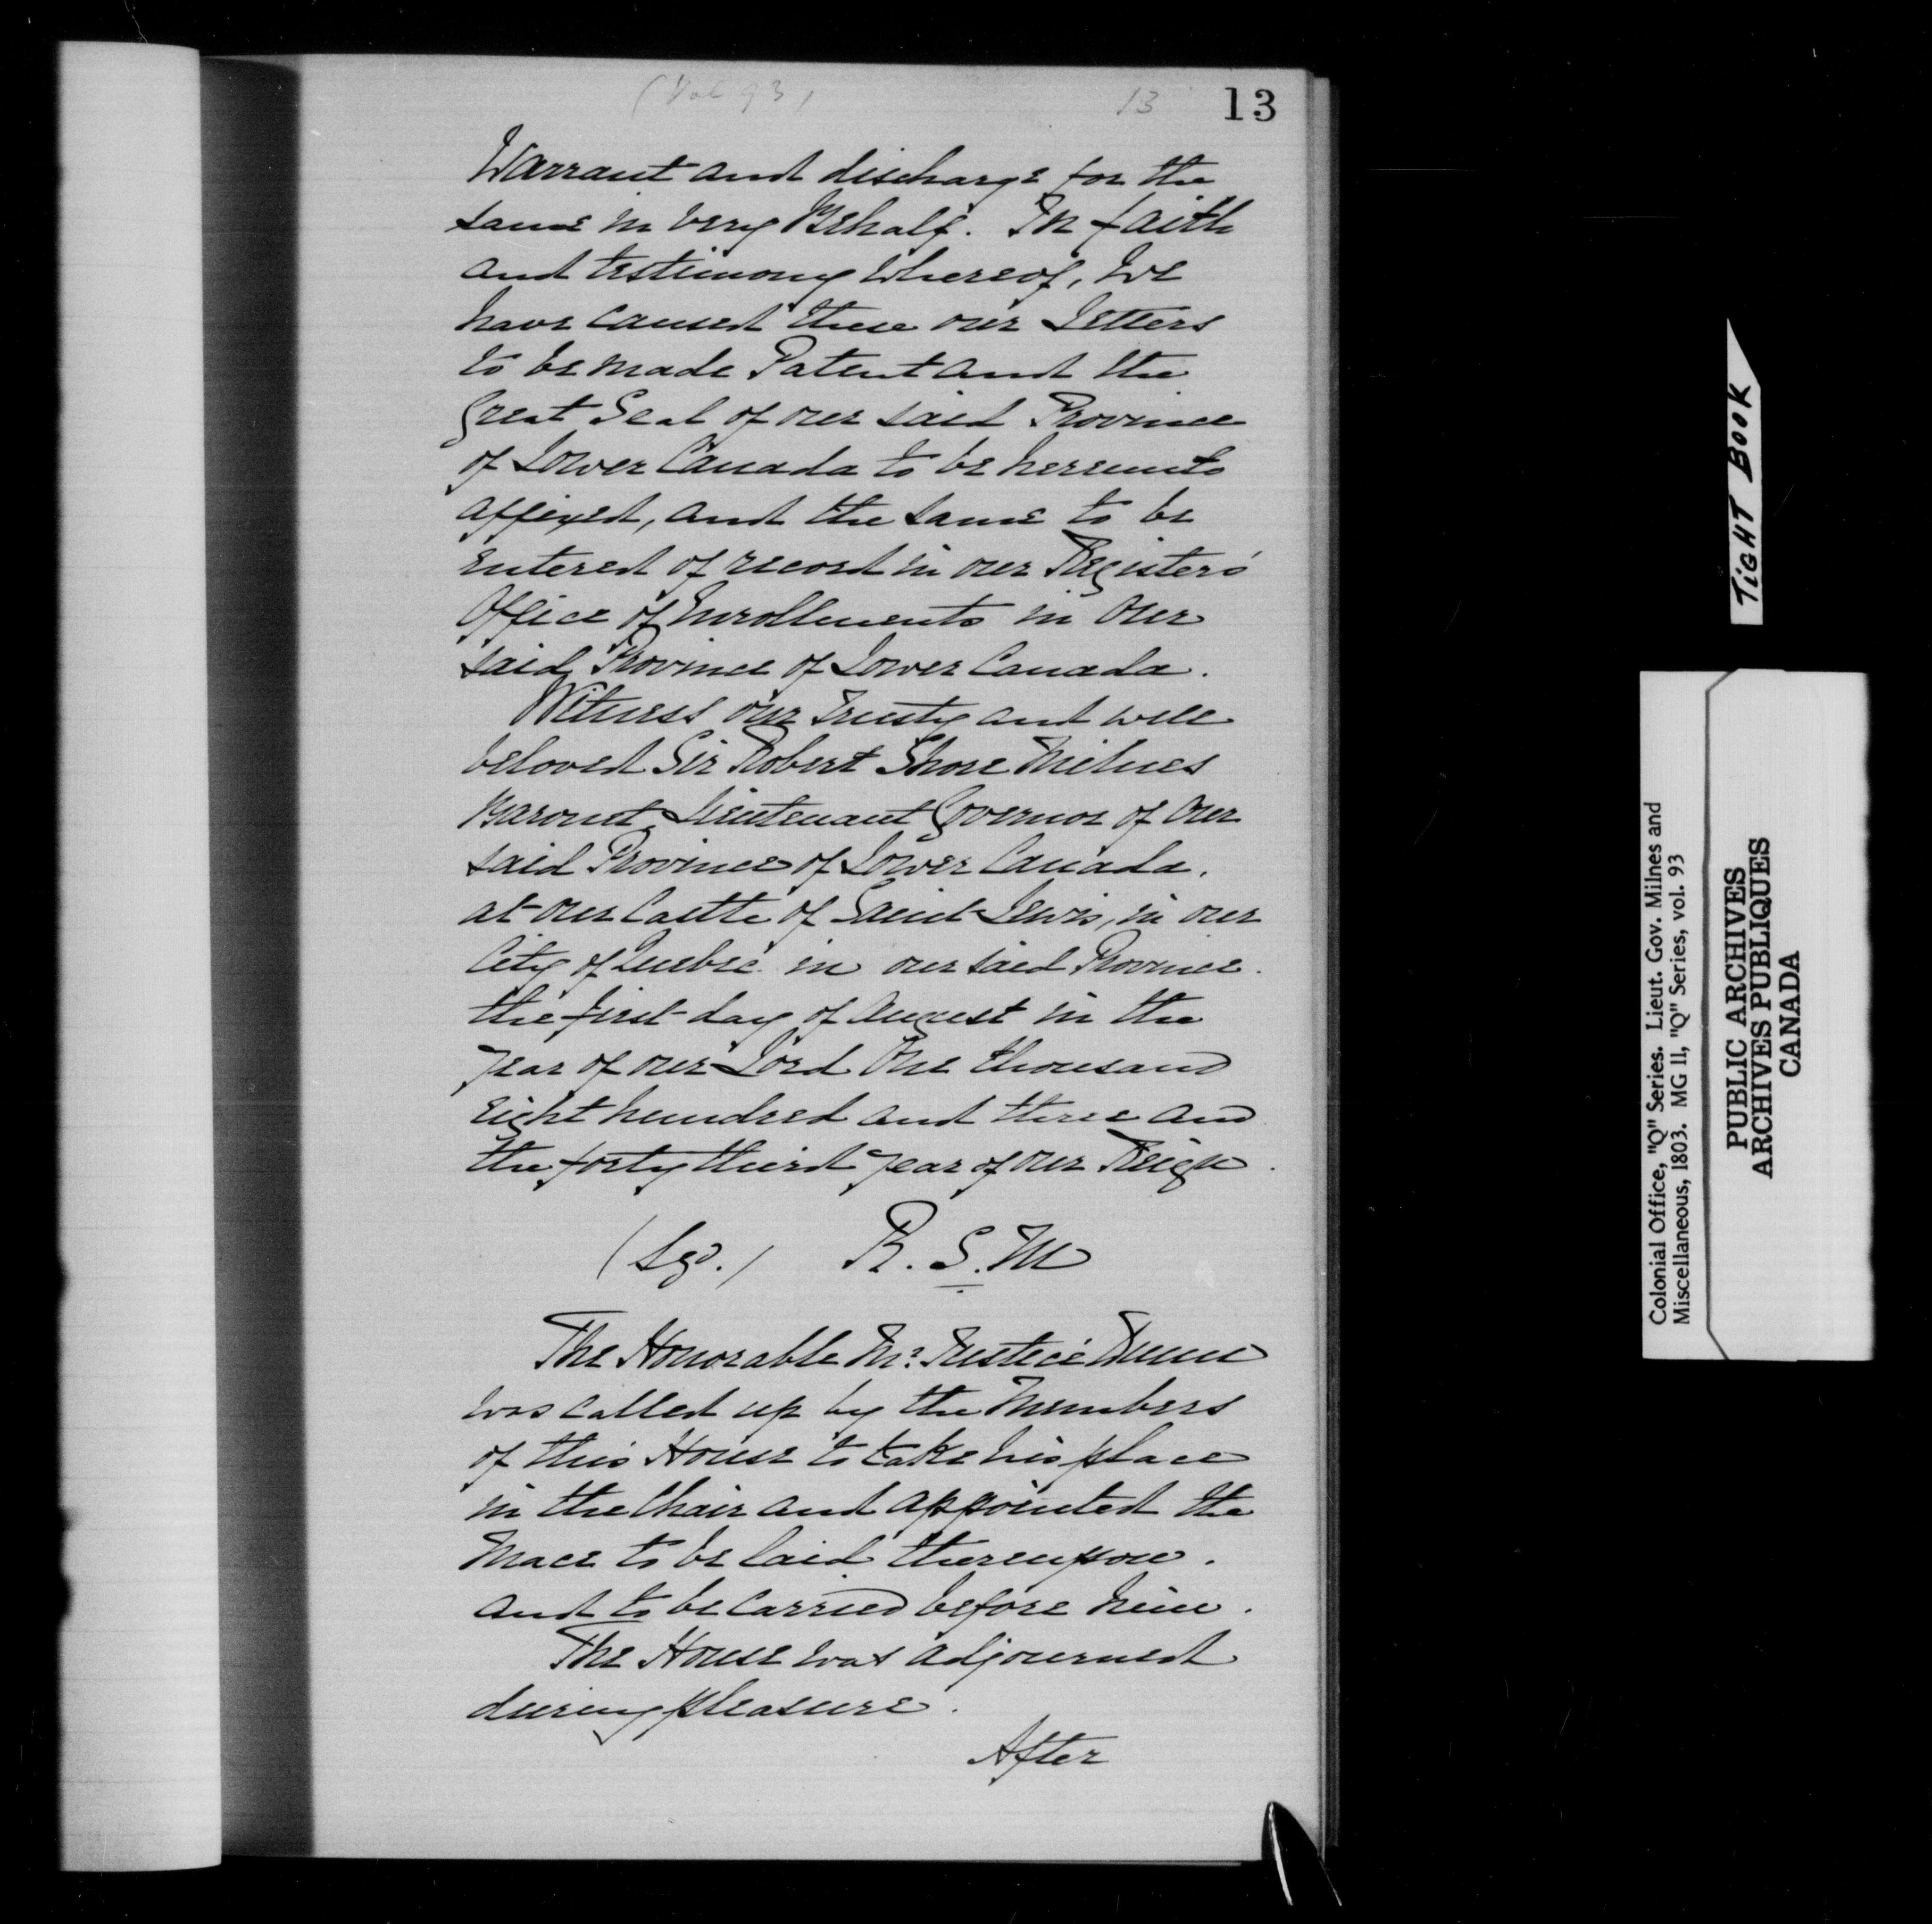 (Vol 93)
13
13
Warrant and discharge for the
same in very Behalf. In faith
and testimony whereof, We
have caused these our Letters
to be made Patent and the
Great Seal of our said Province
of Lower Canada to be hereunto
affixed, and the same to be
entered of record in our Register's
Office of Enrollments in Our
said Province of Lower Canada.
Witness our trusty and well
beloved Sir Robert Shore Milnes
Baronet, Lieutenant Governor of Our
said Province of Lower Canada.
at our Castle of Saint Lewis, in our
City of Quebec in our said Province.
the first day of August in the
year of our Lord One thousand
eight hundred and three and
the forty third year of our Reign.
(Sgd.) R. S. M
The Honorable Mr. Justice Dunn
was called up by the Members
of this House to take his place
in the Chair and appointed the
Mace to be laid thereupon.
and to be carried before him.
The House was adjourned
during pleasure.
After
TIGHT BOOK
Colonial Office, "Q" Series. Lieut. Gov. Milnes and
Miscellaneous, 1803. MG 11, "Q" Series, vol. 93
PUBLIC ARCHIVES
ARCHIVES PUBLIQUES
CANADA